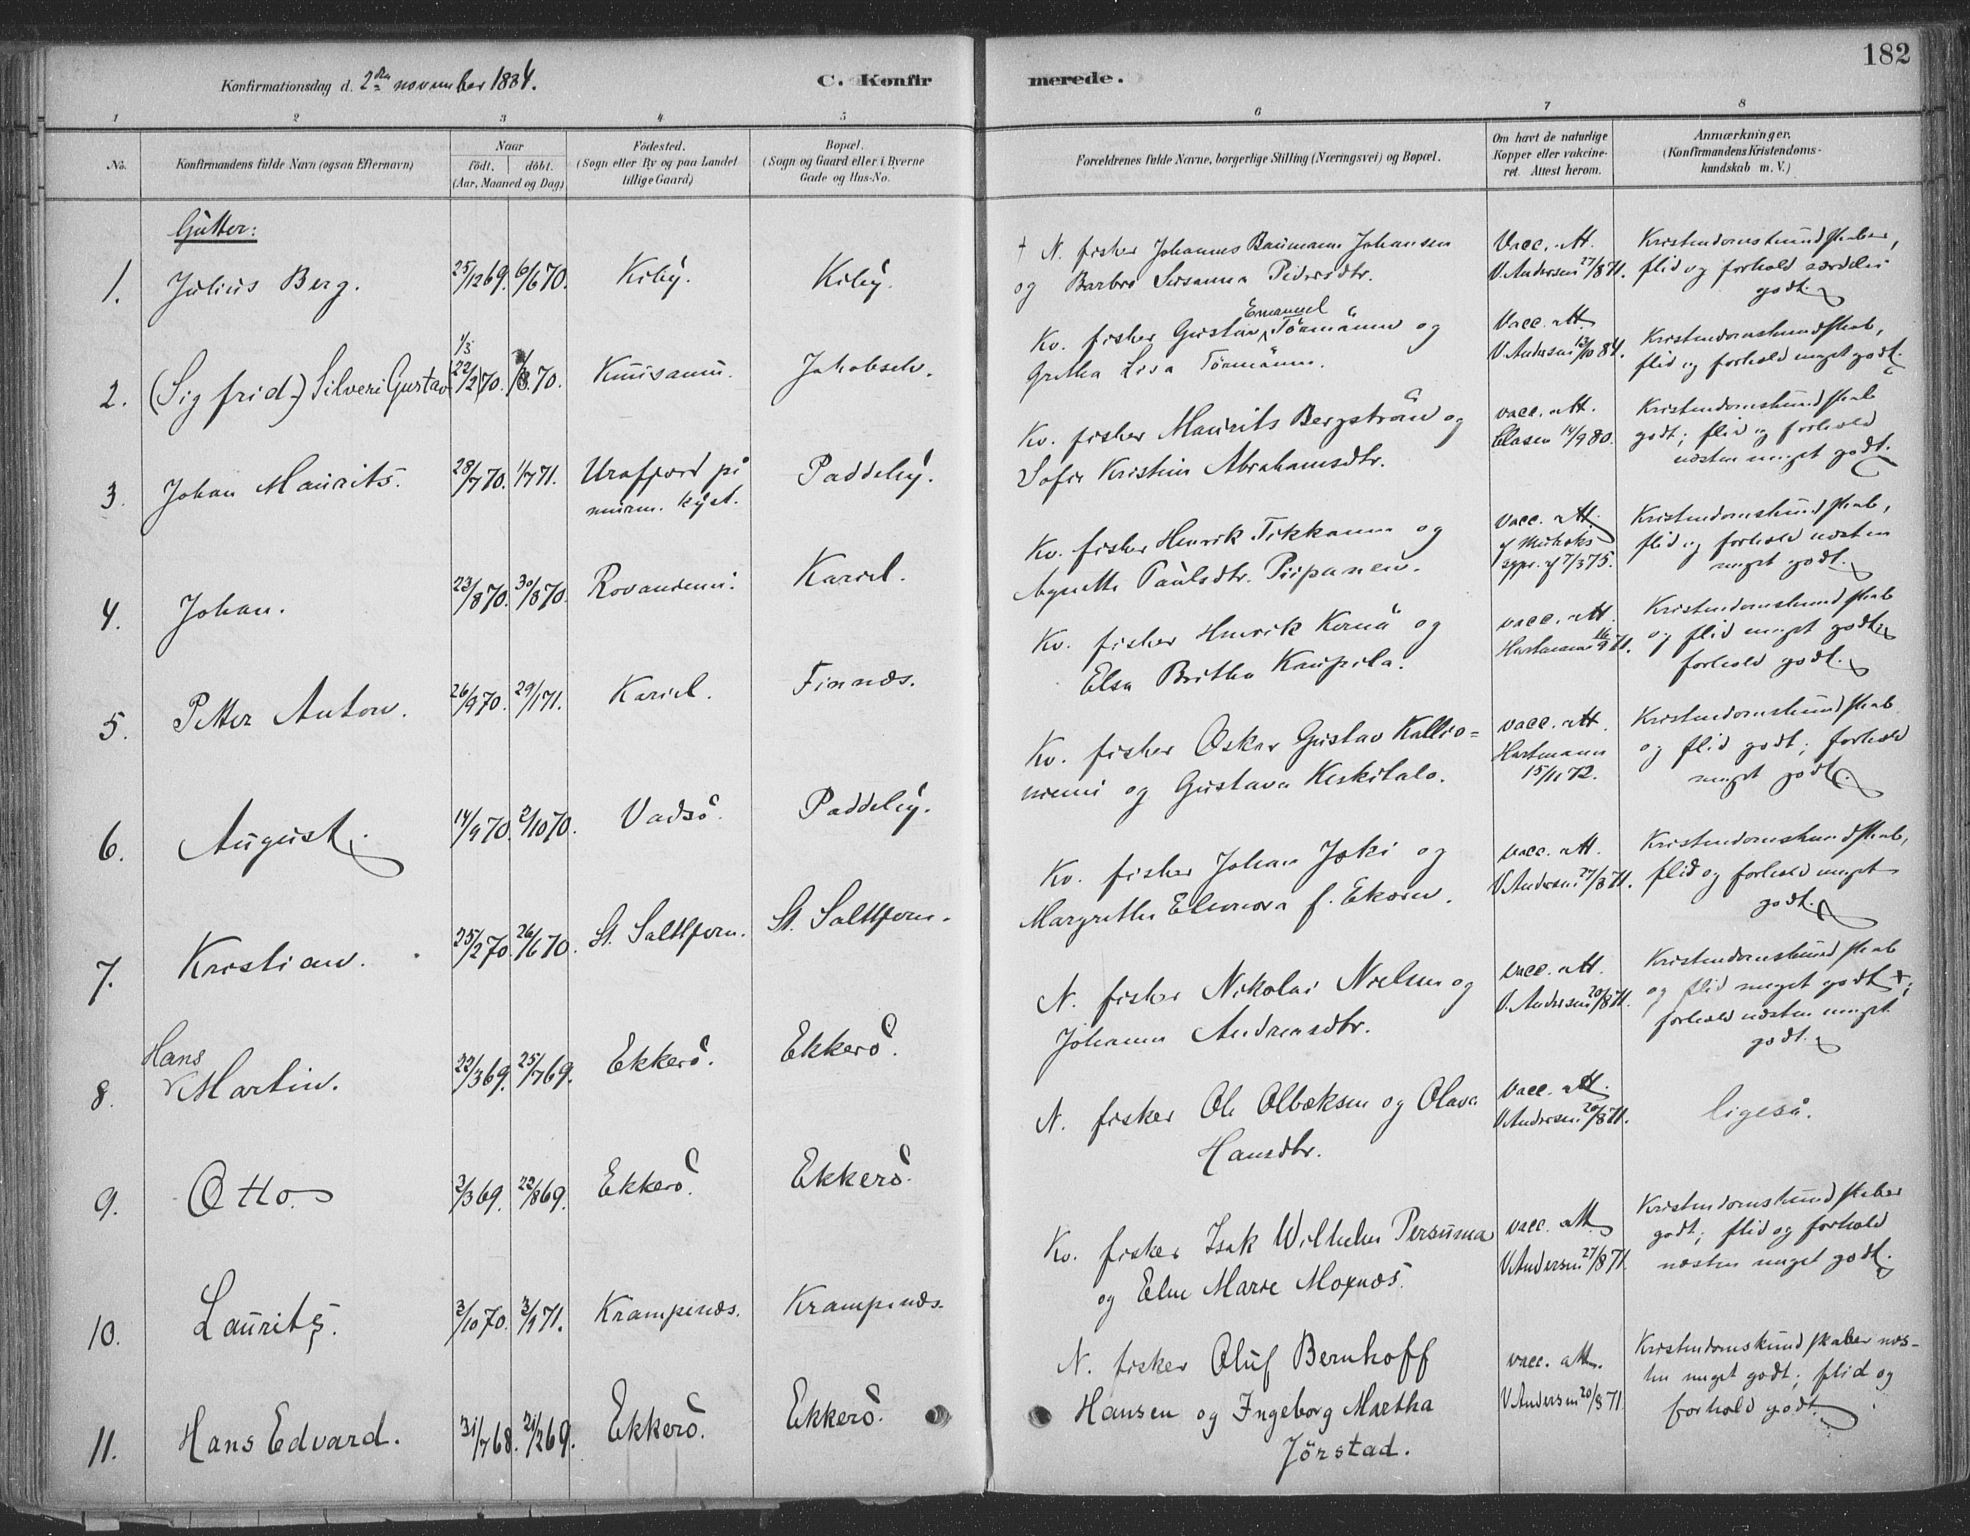 182
Konfirmationsdag d. 2den november 1884.
C. Konfirmerede.
1 2 3 4 5 6 7 8
No.
Konfirmandens fulde Navn (ogsaa Efternavn)
Naar
födt. döbt.
(Aar, Maaned og Dag)
Födested.
(Sogn eller By og paa Landet
tillige Gaard)
Bopæl.
(Sogn og Gaard eller i Byerne
Gade og Hus-No.
Forældrenes fulde Navne, borgerlige Stilling (Næringsvei) og Bopæl.
Om havt de naturlige
Kopper eller vakcine-
ret. Attest herom.
Anmærkninger.
(Konfirmandens Kristendoms-
kundskab m. V.)
Gutter:
1. Julius Berg. 25/12 69. 6/6 70. Kiby. Kiby.
† N. fisker Johannes Baumann Johansen
og Barbro Susanna Pedersdtr.
Vacc. att.
V. Andersen 27/8 71.
Kristendomskundskaber,
flid og forhold særdeles
godt.
2. (Sigfrid) Silveri Gustav 1/3 (22/2) 70. /3 70. Kuusamu. Jakobselv.
Kv. fisker Gustav Emanuel Törmänen og
Gretha Lisa Törmänen.
Vacc. att.
V. Andersen 13/10 84.
Kristendomskundskab,
flid og forhold meget godt.
3. Johan Maurits. 28/7 70. 1/7 71. Urafjord på
murm. kyst. Paddeby.
Kv. fisker Maurits Bergström og
Sofie Kristine Abrahamsdtr.
vacc. att.
Clasen 14/9 80.
Kristendomskundskab
godt; flid og forhold
næsten meget godt.
4. Johan. 23/8 70. 30/8 70. Rovaniemi. Kariel.
Kv. fisker Henrik Tikkanen og
Agnetha Paulsdtr. Piipanen.
vacc. att.
Kristendomskundskab,
flid og forhold næsten
meget godt.
5. Petter Anton. 26/9 70. 29/1 71. Kariel. Finnæs.
Kv. fisker Henrik Kernä og
Elsa Britha Kaupila.
vacc. att.
Hartmann 16/9 71.
Kristendomskundskab
og flid meget godt;
forhold godt.
6. August. 14/9 70. 2/10 70. Vadsö. Paddeby.
Kv. fisker Oskar Gustav Kallio-
niemi og Gustava Keskitalo.
vacc. att.
Hartmann
15/11 72.
Kristendomskundskab
og flid godt; forhold
meget godt.
7. Kristian. 25/2 70. 26/6 70. St. Saltfjern. St. Saltfjern.
Kv. fisker Johan Joki og
Margrethe Eleonora f. Ekorn.
vacc. att.
V. Andersen 27/8 71.
Kristendomskundskab,
flid og forhold meget
godt.
8. Hans
Martin. 22/3 69. 25/7 69. Ekkerö. Ekkerö.
N. fisker Nikolai Nielsen og
Johanna Andreasdtr.
vacc. att.
V. Andersen 20/8 71.
Kristendomskundskab
og flid meget godt;
forhold næsten meget
godt.
9. Otto. 2/3 69. 22/8 69. Ekkerö. Ekkerö.
N. fisker Ole Olbeksen og Olava
Hansdtr.
vacc. att.
V. Andersen 20/8 71.
ligeså.
10. Laurits. 2/10 70. 3/9 71. Krampenæs. Krampenæs.
Kv. fisker Isak Wilhelm Persuma
og Elen Marie Moxnæs.
vacc. att.
V. Andersen 27/8 71.
Kristendomskundskaber
godt; flid og forhold
næsten meget godt.
11. Hans Edvard. 31/7 68. 21/2 69. Ekkerö. Ekkerö.
N. fisker Oluf Bernhoff
Hansen og Ingeborg Martha
Jörstad.
vacc. att.
V. Andersen 20/8 71.
Kristendomskundskaber næs-
ten meget godt; flid og
forhold godt.